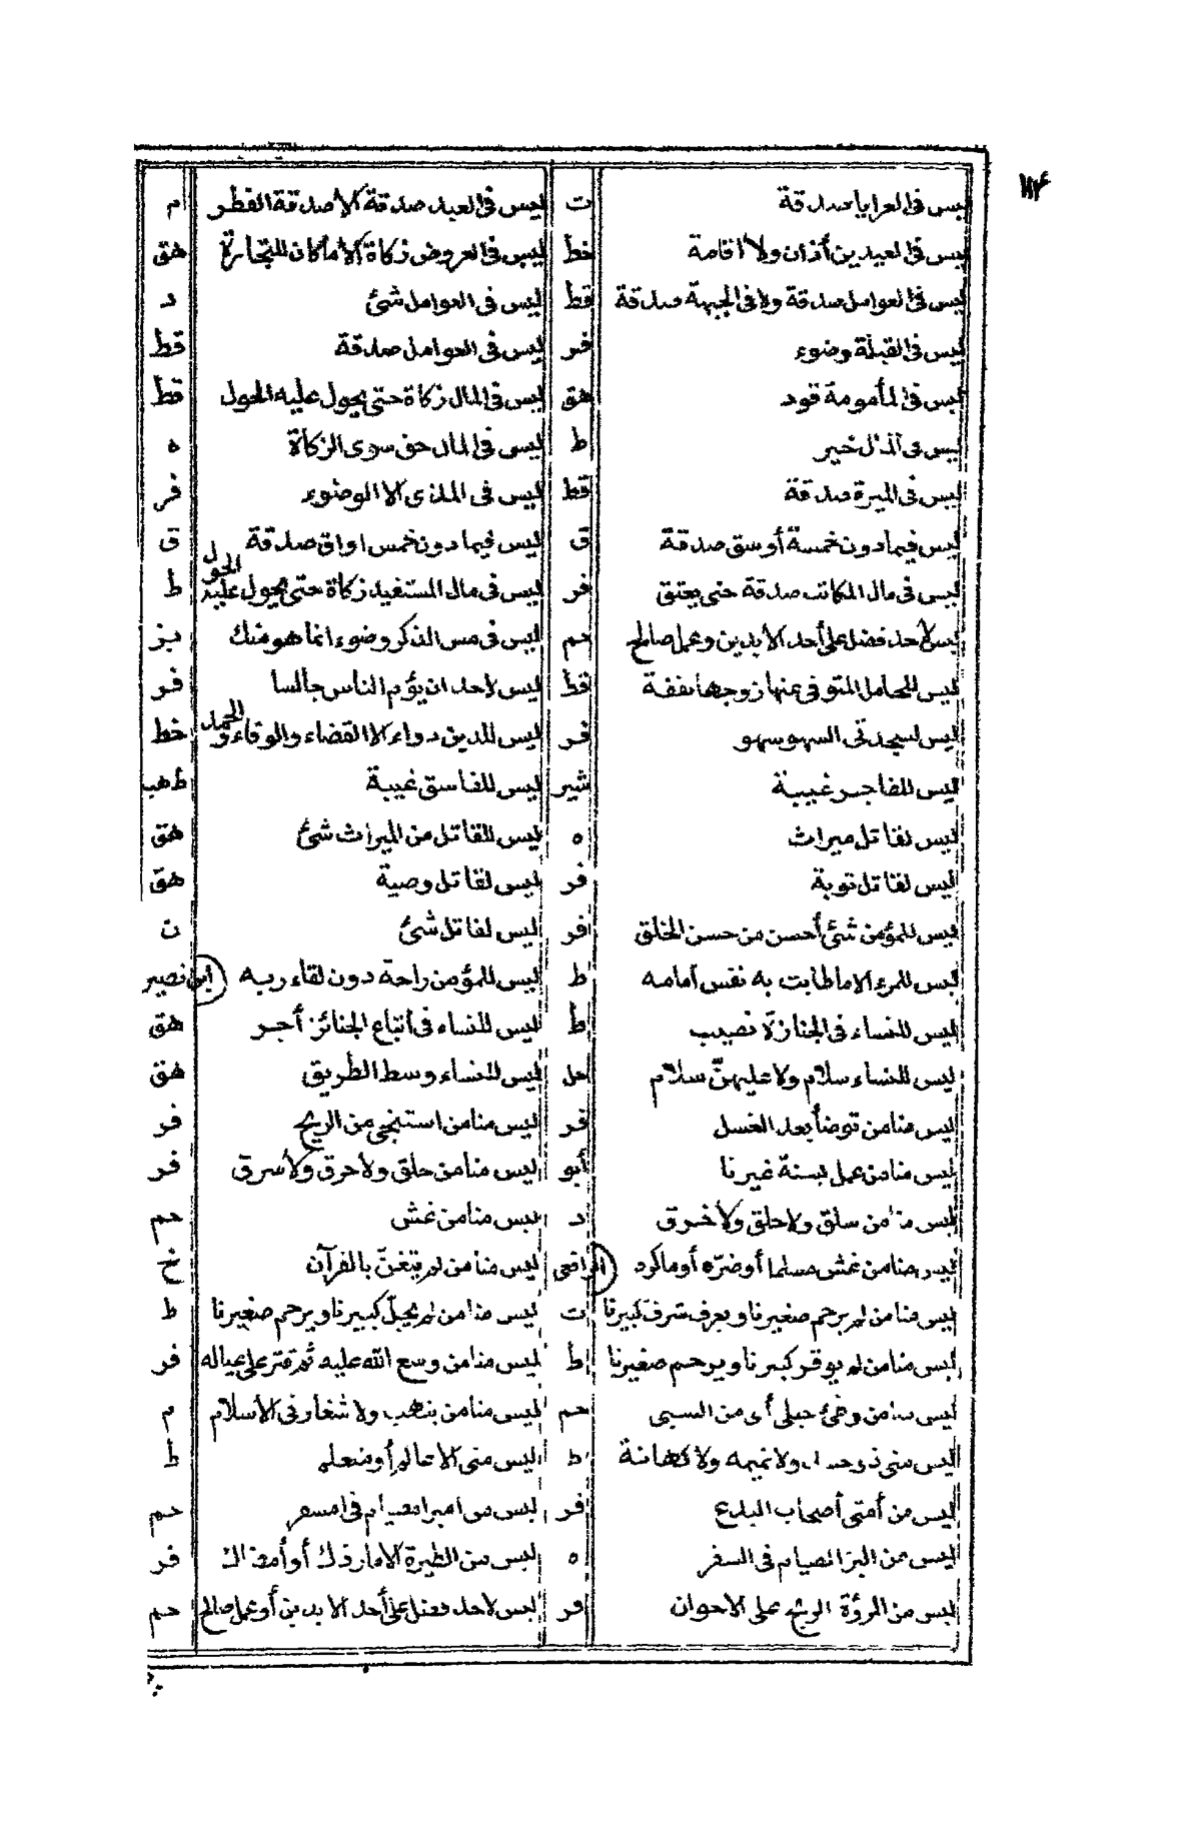 ١١٤
ليس فى العرايا صدقة ت ليس فى العبد صدقة الا صدقة الفطر م
ليس فى العيدين أذان ولا اقامة خط ليس فى العروض زكاة الا ما كان للتجارة هق
ليس فى العوامل صدقة ولا فى الجبهة صدقة قط ليس فى العوامل شئ د
ليس فى القبلة وضوء فر ليس فى العوامل صدقة قط
ليس فى المأمومة قود هق ليس فى المال زكاة حتى يحول عليه الحول قط
ليس خير ط ليس فى المال حق سوى الزكاة ه
ليس فى الميرة صدقة قط ليس فى المذى الا الوضوء فر
ليس فيما دون خمسة أوسق صدقة ق ليس فيما دون خمس اواق صدقة ق
ليس فى مال المكاتب صدقة حتى يعتق فر ليس فى مال المستفيد زكاة حتى يحول عليه الحول ط
ليس لاحد فضل على أحد الا بدين وعمل صالح حم ليس فى مس الذكر وضوء انما هو منك بز
ليس للحامل المتوفى عنها زوجها نفقة قط ليس لاحد ان يؤم الناس جالسا فر
ليس لسجدتى السهو سهو فر ليس للدين دواء الا القضاء والوفاء والحمد خط
ليس للفاجر غيبة شير ليس للفاسق غيبة ط هب
ليس لقاتل ميراث ه ليس للقاتل من الميراث شئ هق
ليس لقاتل توبة فر ليس لقاتل وصية هق
ليس للمؤمن شئ أحسن من حسن الخلق فر ليس لقاتل شئ ن
ليس للمرء الا ما طابت به نفس امامه ط ليس للمؤمن راحة دون لقاء ربه ابن نصير
ليس للنساء فى الجنازة نصيب ط ليس للنساء فى اتباع الجنائز أجر هق
ليس للنساء سلام ولا عليهنّ سلام حل ليس للنساء وسط الطريق هق
ليس منا من توضأ بعد الغسل فر ليس منا من استنجى من الريح فر
ليس منا من عمل بسنة غيرنا أبو ليس منا من حلق ولا خرق ولا سرق فر
ليس منا من سلق ولا حلق ولا خرق د ليس منا من غش حم
ليس منا من غش مسلما أو ضرّه أو ماكره الرافعى ليس منا من لم يتغنّ بالقرآن خ
ليس منا من لم يرحم صغيرنا ويعرف شرف كبيرنا ت ليس منا من لم يجلّ كبيرنا ويرحم صغيرنا ط
ليس منا من لم يوقر كبيرنا ويرحم صغيرنا ط ليس منا من وسع الله عليه ثم قتر على عياله فر
ليس منا من وطئ حبلى أى من السبى حم ليس منا من ينهب ولا شغار فى الاسلام م
ليس منى ذو حسد ولا نميمه ولا كهانة ط ليس منى الا عالم أو متعلم ط
ليس من أمتى أصحاب البدع فر ليس من امبر امصيام فى امسفر حم
ليس من البر الصيام فى السفر ه ليس من الطيرة الا ما ردك أو أمضاك فر
ليس من المروّة الربح على الاخوان فر ليس لاحد فضل على أحد الا بدين أو عمل صالح حم